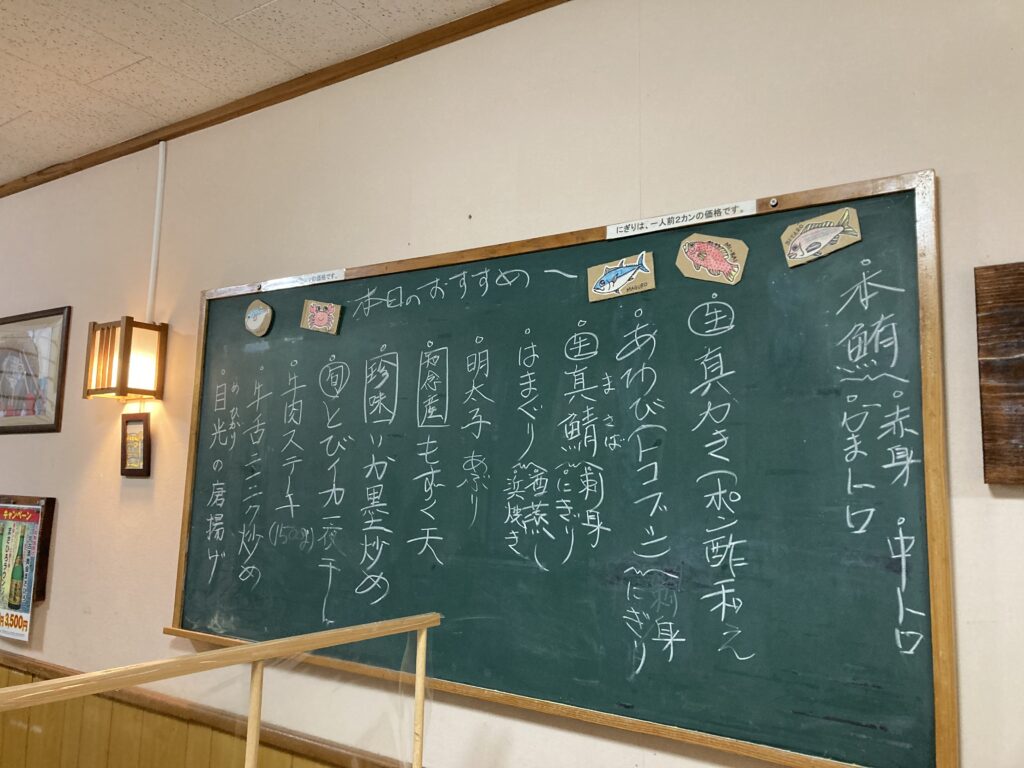 にぎりは、一人前2カンの価格です。
の価格です。
本日のおすすめ
MAGURO
本鮪
赤身
中トロ
生 真がき(ポン酢和え
あわび(トコブシ)
刺身
にぎり
生 真鯖
まさば
刺身
にぎり
はまぐり
酒蒸し
浜焼き
明太子 あぶり
もずく天
珍味 いか墨炒め
旬 とびイカ一夜干し
牛肉ステーキ
(150g)
牛舌ニンニク炒め
目光の唐揚げ
めひかり
キャンペーン
3,500円